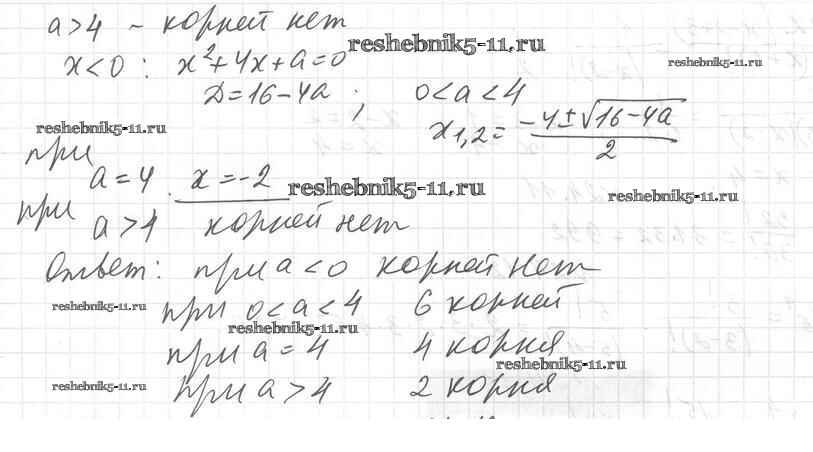 a>4 - корней нет
reshebnik5-11.ru
x<0 : x²+4x+a=0
reshebnik5-11.ru
D=16-4a ; 0<a<4
x₁,₂= (-4±√(16-4a))/2
reshebnik5-11.ru
при a=4 x=-2
reshebnik5-11.ru
reshebnik5-11.ru
при a>4 корней нет
Ответ: при a<0 корней нет
reshebnik5-11.ru
при 0<a<4 6 корней
reshebnik5-11.ru
при a=4 4 корня
reshebnik5-11.ru
reshebnik5-11.ru
при a>4 2 корня